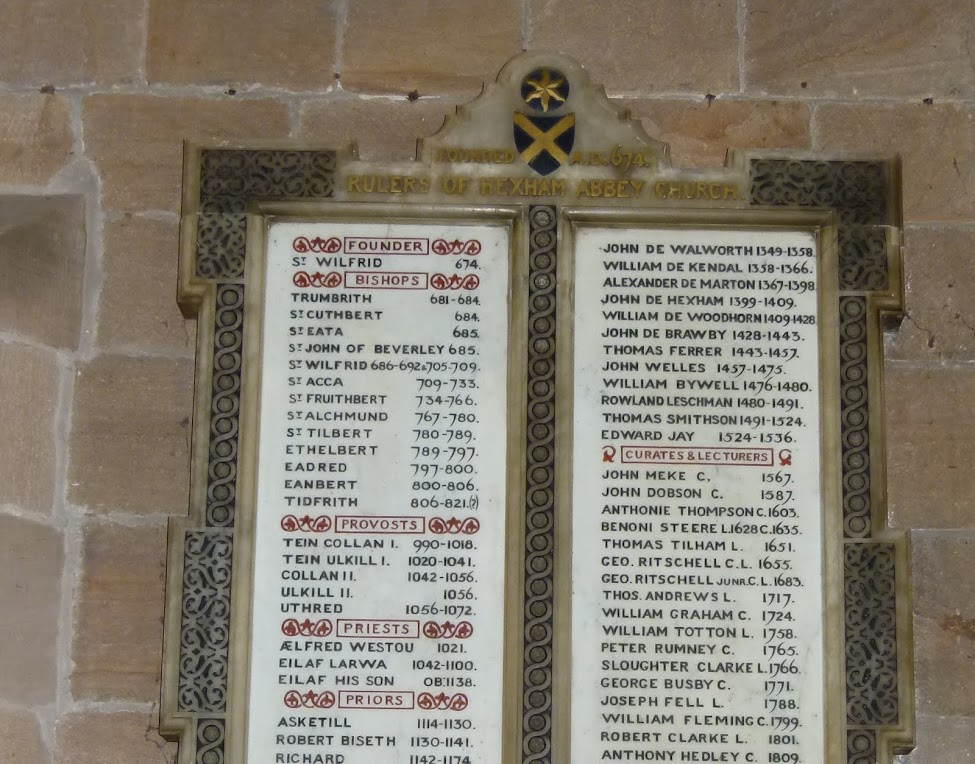 FOUNDED A.D. 674.
RULERS OF HEXHAM ABBEY CHURCH
FOUNDER
ST WILFRID 674.
BISHOPS
TRUMBRITH 681-684.
ST CUTHBERT 684.
ST EATA 685.
ST JOHN OF BEVERLEY 685.
ST WILFRID 686-692 & 705-709.
ST ACCA 709-733.
ST FRUITHBERT 734-766.
ST ALCHMUND 767-780.
ST TILBERT 780-789.
ETHELBERT 789-797.
EADRED 797-800.
EANBERT 800-806.
TIDFRITH 806-821.(?)
PROVOSTS
TEIN COLLAN I. 990-1018.
TEIN ULKILL I. 1020-1041.
COLLAN II. 1042-1056.
ULKILL II. 1056.
UTHRED 1056-1072.
PRIESTS
ÆLFRED WESTOU 1021.
EILAF LARWA 1042-1100.
EILAF HIS SON OB: 1138.
PRIORS
ASKETILL 1114-1130.
ROBERT BISETH 1130-1141.
RICHARD 1142-1174.
JOHN DE WALWORTH 1349-1358.
WILLIAM DE KENDAL 1358-1366.
ALEXANDER DE MARTON 1367-1398.
JOHN DE HEXHAM 1399-1409.
WILLIAM DE WOODHORN 1409-1428.
JOHN DE BRAWBY 1428-1443.
THOMAS FERRER 1443-1457.
JOHN WELLES 1457-1475.
WILLIAM BYWELL 1476-1480.
ROWLAND LESCHMAN 1480-1491.
THOMAS SMITHSON 1491-1524.
EDWARD JAY 1524-1536.
CURATES & LECTURERS
JOHN MEKE C. 1567.
JOHN DOBSON C. 1587.
ANTHONIE THOMPSON C. 1603.
BENONI STEERE L. 1628 C. 1635.
THOMAS TILHAM L. 1651.
GEO. RITSCHELL C. L. 1655.
GEO. RITSCHELL JUNR. C. L. 1683.
THOS. ANDREWS L. 1717.
WILLIAM GRAHAM C. 1724.
WILLIAM TOTTON L. 1758.
PETER RUMNEY C. 1765.
SLOUGHTER CLARKE L. 1766.
GEORGE BUSBY C. 1771.
JOSEPH FELL L. 1788.
WILLIAM FLEMING C. 1799.
ROBERT CLARKE L. 1801.
ANTHONY HEDLEY C. 1809.